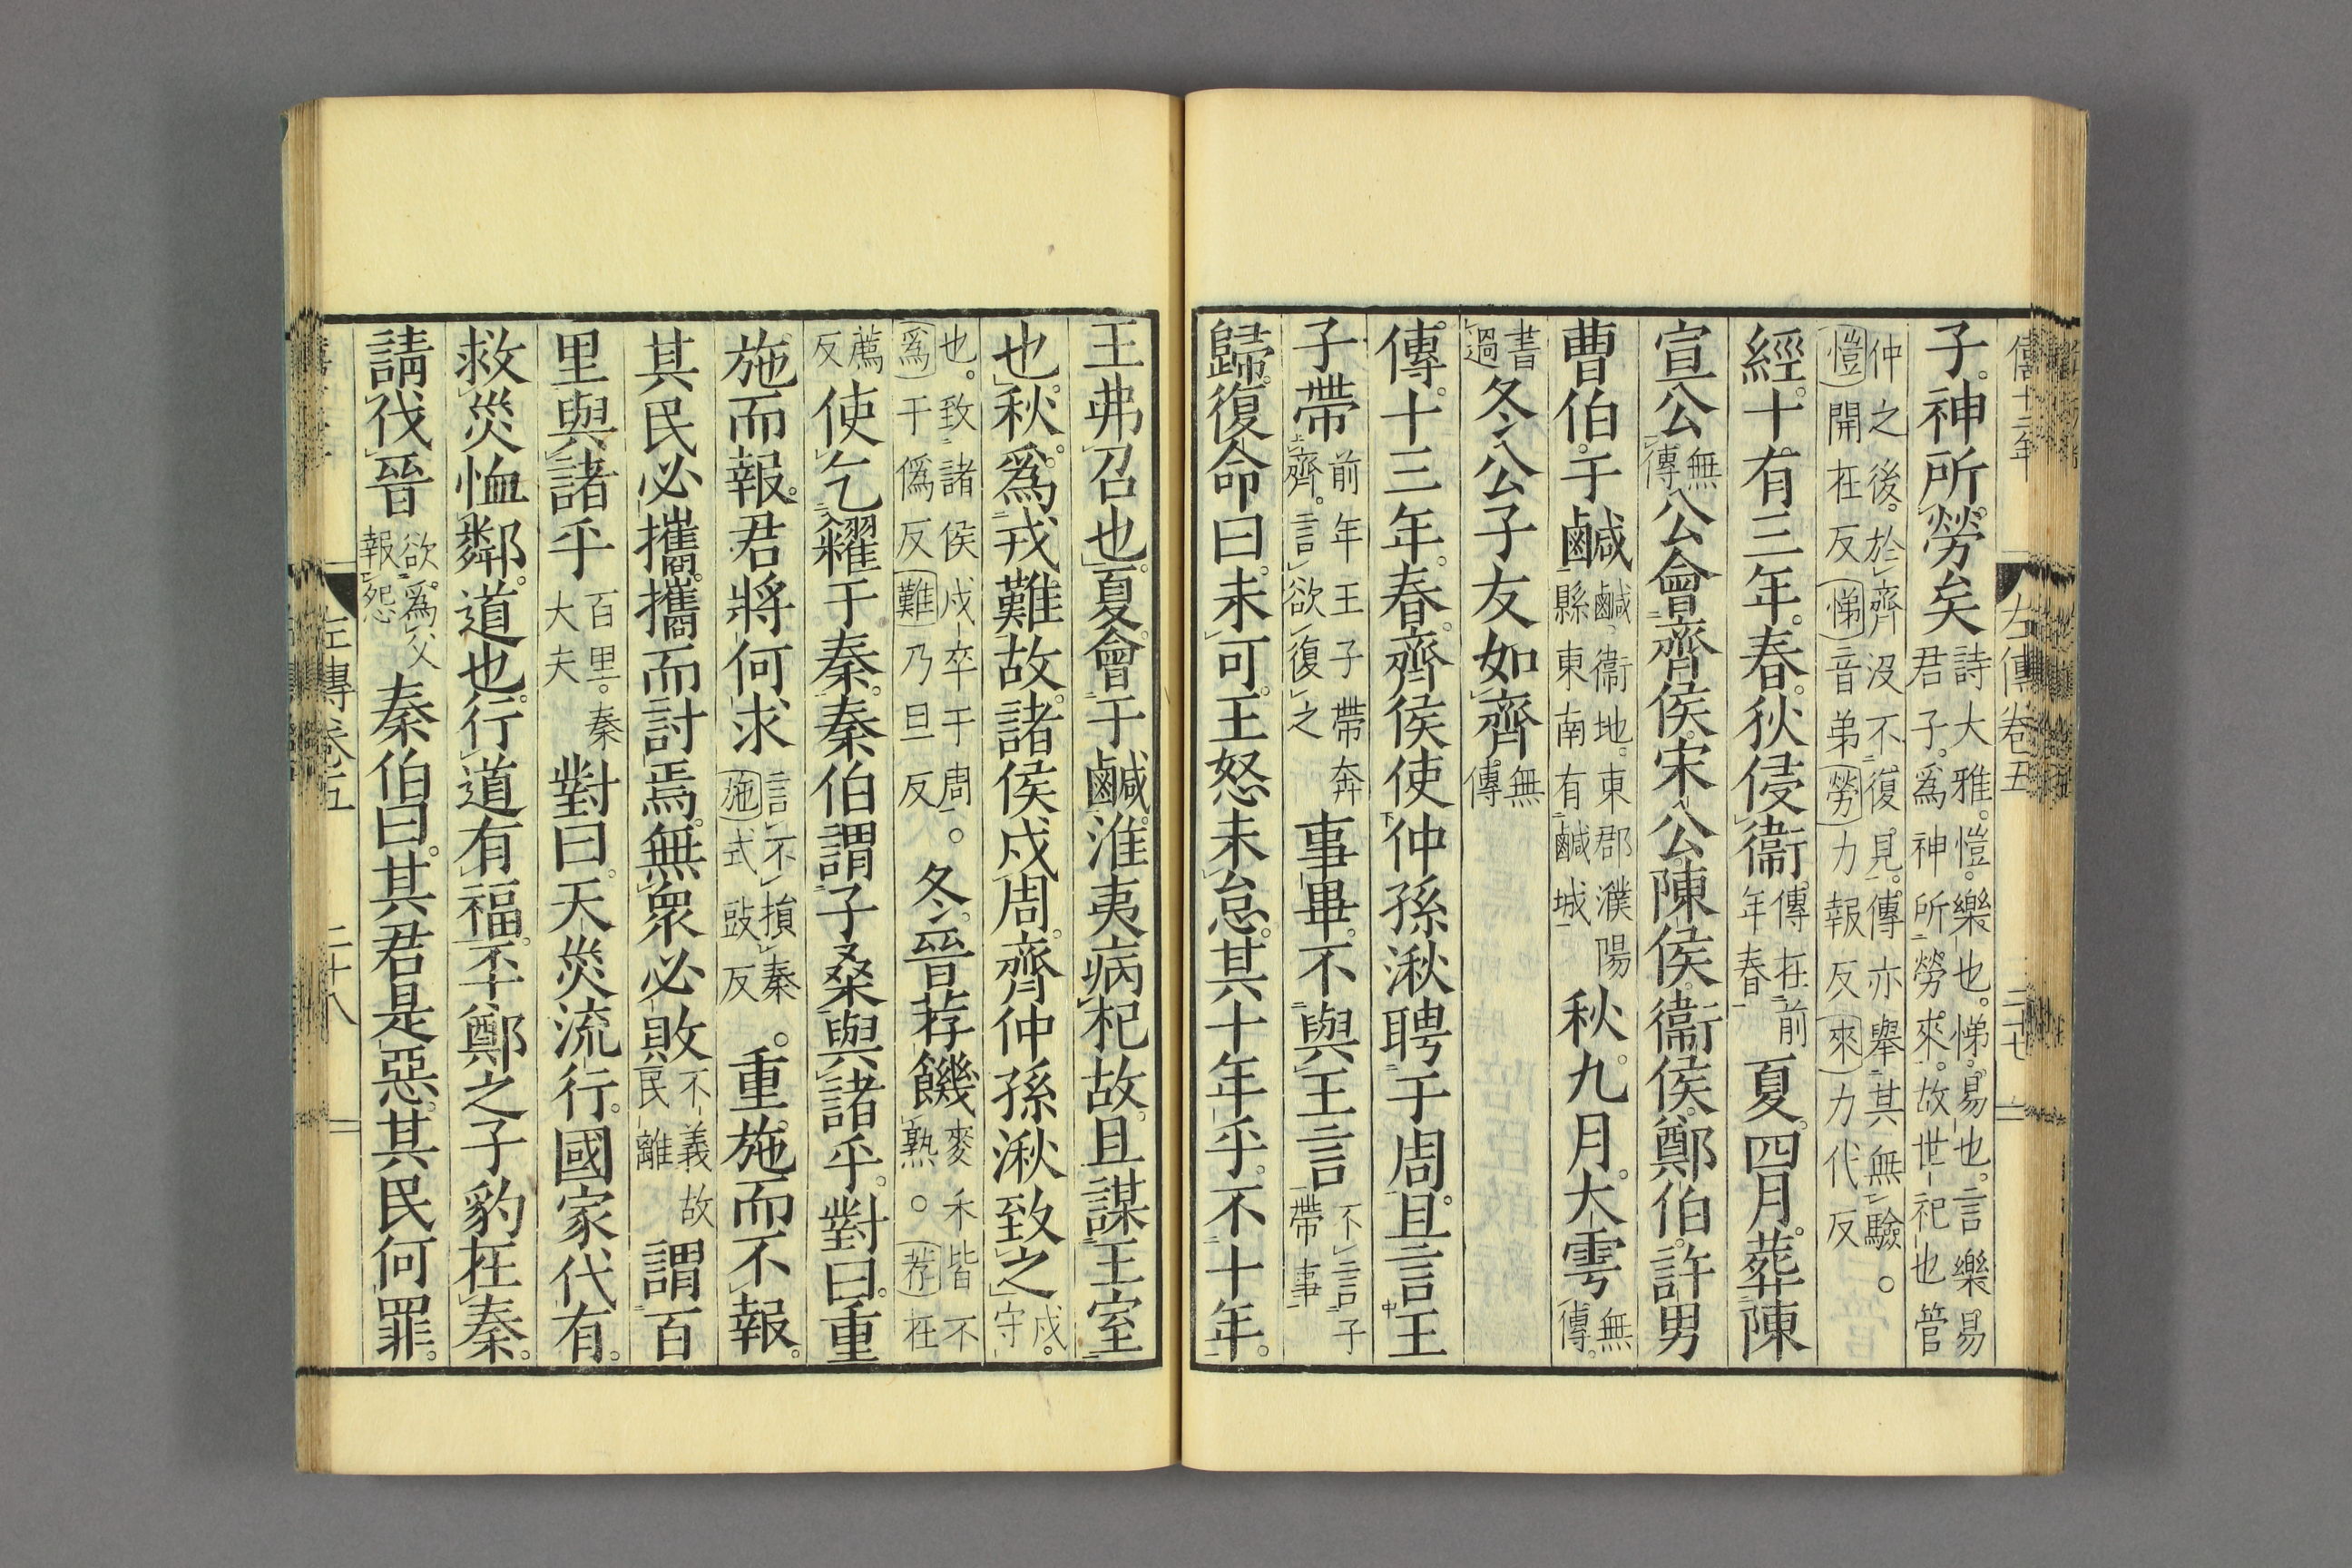 僖十二年 左傳卷五 二十七
子。神所勞矣詩大雅。愷。樂也。悌。易也。言樂易君子。爲神所勞來。故世祀也管
仲之後。於齊沒不復見。傳亦舉其無驗。愷開在反悌音弟勞力報反來力代反
經。十有三年。春。狄侵衞。傳在前年春夏。四月。葬陳
宣公無傳公會齊侯。宋公。陳侯。衞侯。鄭伯。許男
曹伯。于鹹鹹。衞地。東郡濮陽縣東南有鹹城秋。九月。大雩無傳。
書過冬。公子友如齊。無傳
傳。十三年。春。齊侯使仲孫湫聘于周。且言王
子帶前年王子帶奔齊。言欲復之事畢。不與王言不言子帶事
歸。復命曰。未可。王怒未怠。其十年乎。不十年。
王弗召也。夏。會于鹹。淮夷病杞故。且謀王室
也。秋。爲戎難故。諸侯戍周。齊仲孫湫致之戍。守
也。致諸侯戍卒于周。爲于僞反難乃旦反。冬。晉荐饑麥禾皆不熟。荐在
薦反使乞糴于秦。秦伯謂子桑。與諸乎。對曰。重
施而報。君將何求言不損秦施式豉反。重施而不報。
其民必攜。攜而討焉。無衆必敗不義故民離謂百
里與諸乎百里。秦大夫對曰。天災流行。國家代有。
救災恤鄰。道也。行道有福。丕鄭之子豹在秦。
請伐晉欲爲父報怨秦伯曰。其君是惡。其民何罪。
左傳卷五 二十八